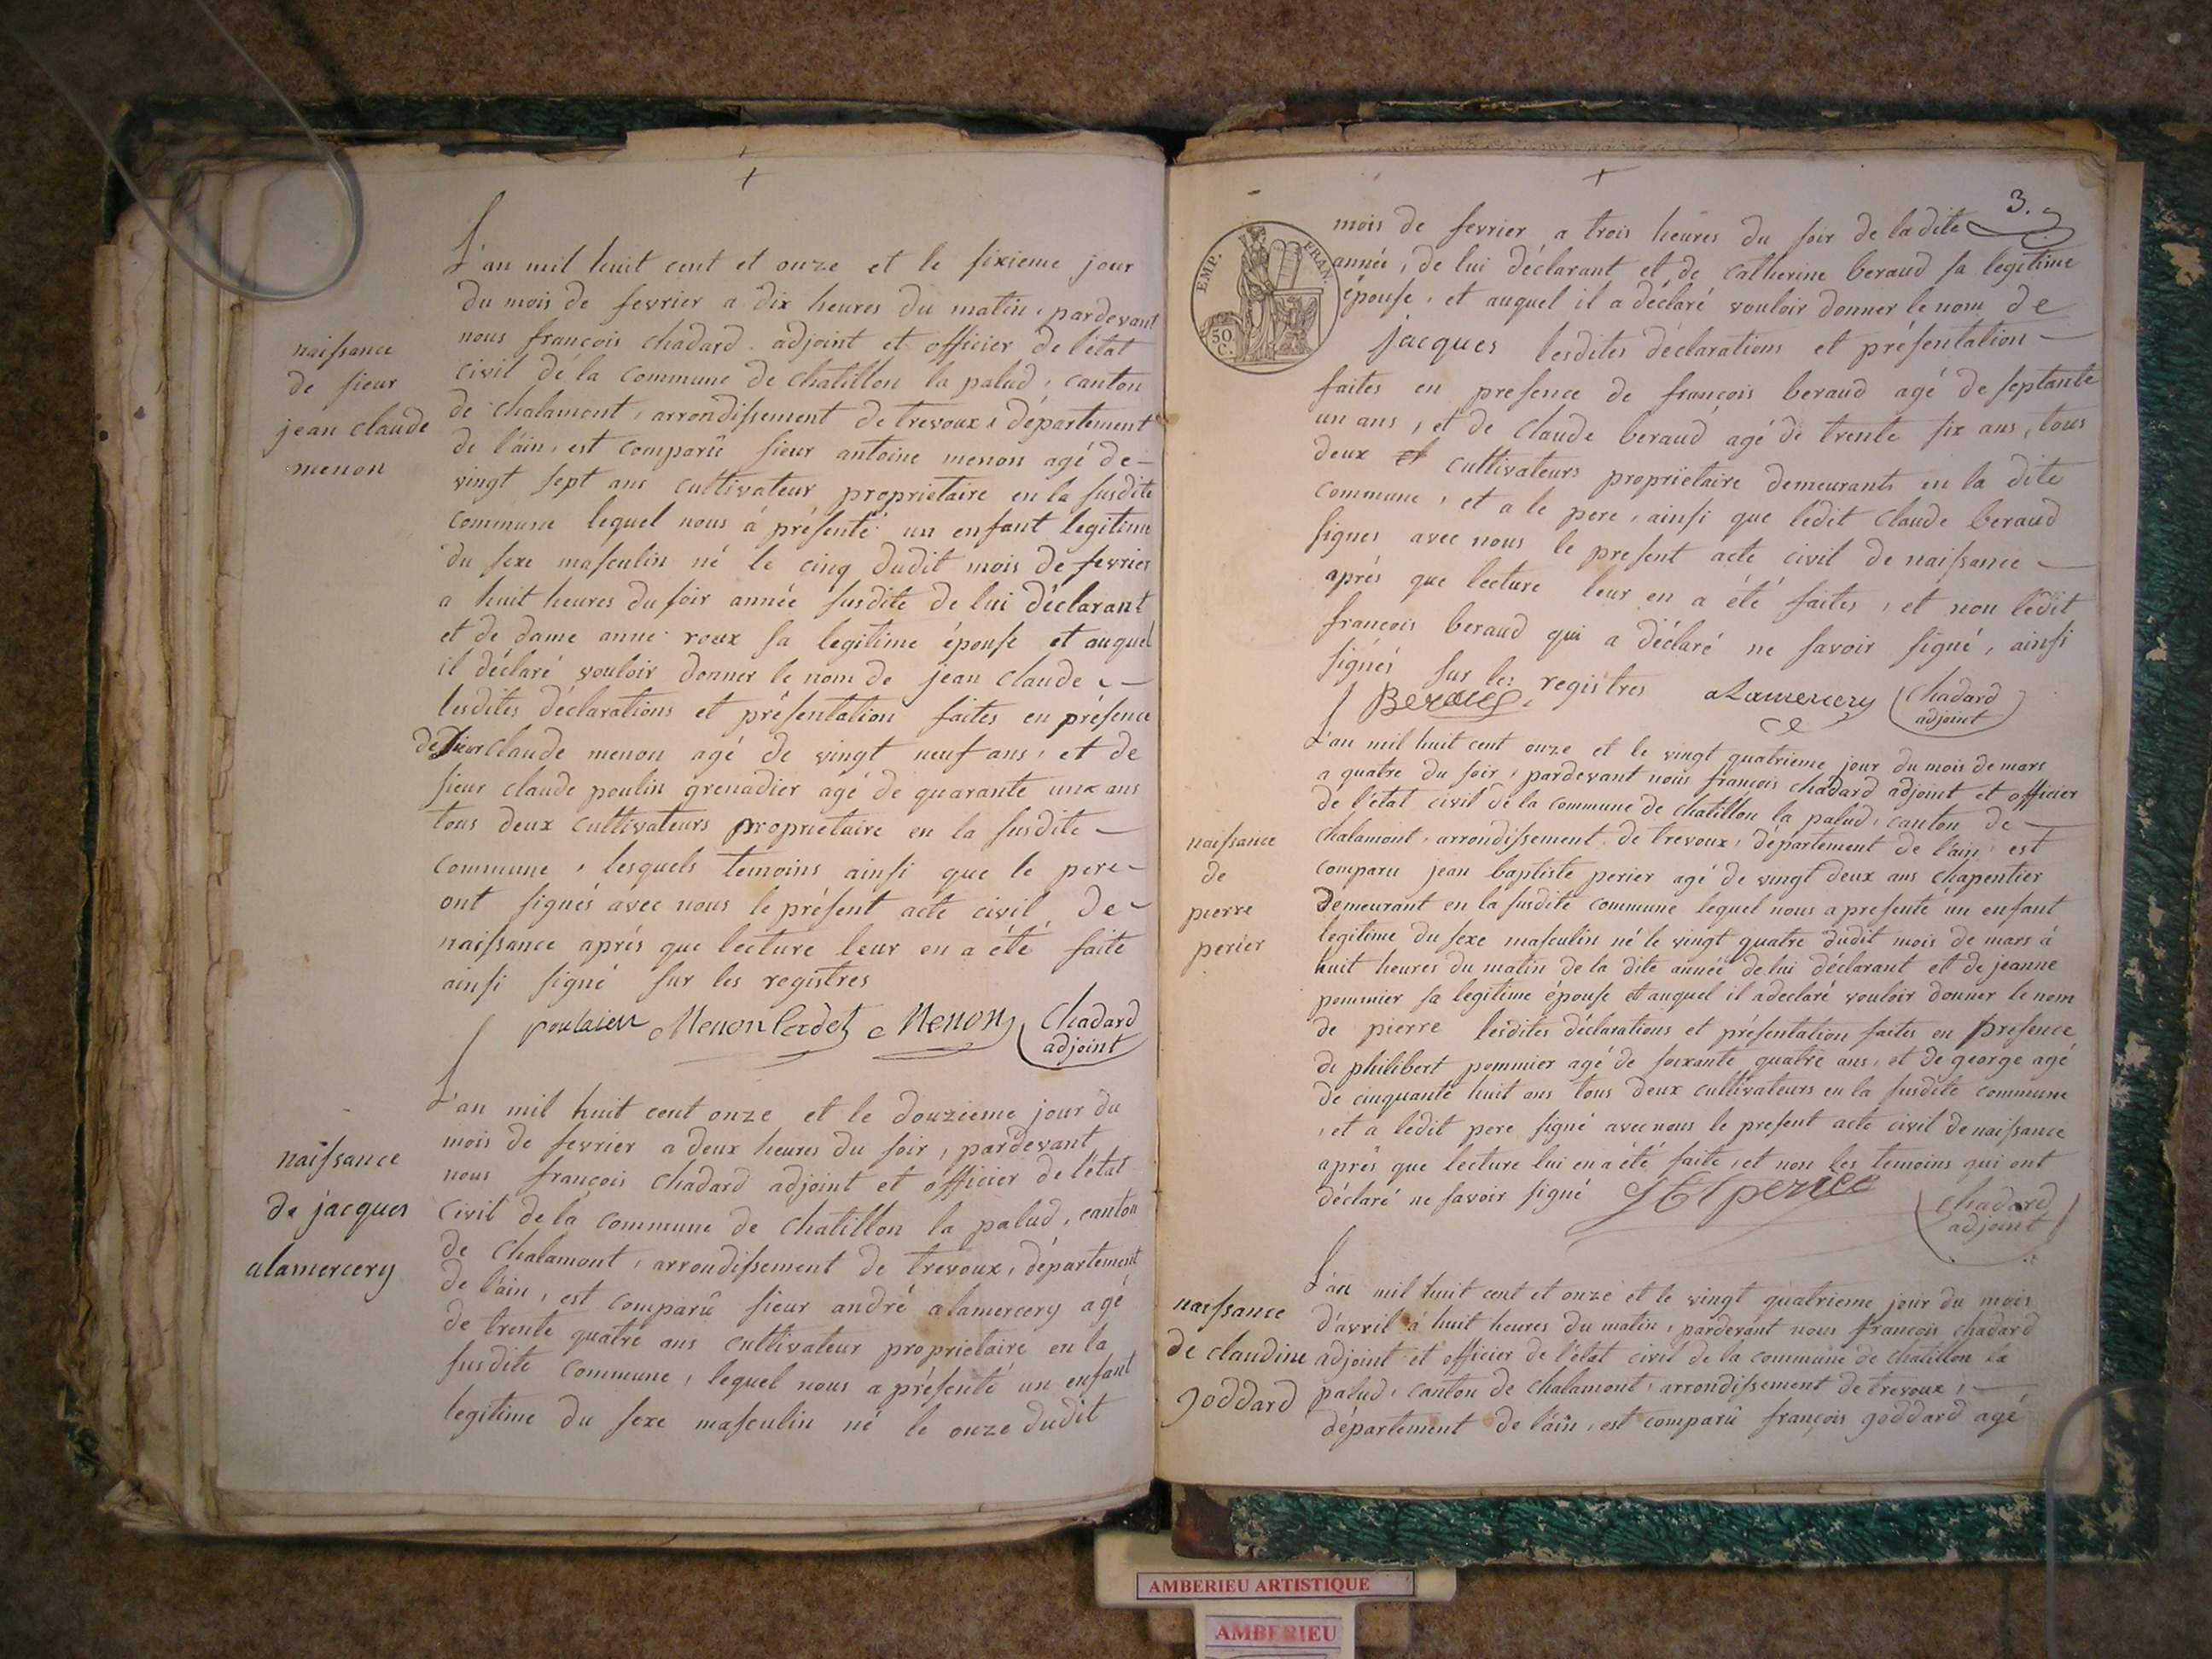 naissance
de sieur
jean claude
menon
L'an mil huit cent et onze et le sixieme jour
du mois de fevrier a dix heures du matin, pardevant
nous françois chadard adjoint et officier de l'état
civil de la commune de chatillon la palud, canton
de chalamont, arrondissement de trevoux, département
de l'ain, est comparû sieur antoine menon agé de
vingt sept ans cultivateur proprietaire en la susdite
commune lequel nous à présenté un enfant legitime
du sexe masculin né le cinq dudit mois de fevrier
a huit heures du soir année susdite de lui déclarant
et de dame anne roux sa legitime épouse et auquel
il déclaré vouloir donner le nom de jean claude
lesdites déclarations et présentation faites en présence
de sieur claude menon agé de vingt neuf ans, et de
sieur claude poulin grenadier agé de quarante un ans
tous deux cultivateurs proprietaire en la susdite
commune, lesquels temoins ainsi que le pere
ont signés avec nous le présent acte civil de
naissance aprés que lecture leur en a été faite
ainsi signé sur les registres
poulain Menon Cadet Menon Chadard
adjoint
naissance
de jacques
alamercery
L'an mil huit cent onze et le douzieme jour du
mois de fevrier a deux heures du soir, pardevant
nous françois chadard adjoint et officier de l'état
civil de la commune de chatillon la palud, canton
de chalamont, arrondissement de trevoux, département
de l'ain, est comparû sieur andré alamercery agé
de trente quatre ans cultivateur proprietaire en la
susdite commune, lequel nous a présenté un enfant
legitime du sexe masculin né le onze dudit
3.
EMP. FRAN.
50 C.
mois de fevrier a trois heures du soir de la dite
année, de lui déclarant et de catherine beraud sa legitime
épouse, et auquel il a déclaré vouloir donner le nom de
jacques lesdites déclarations et présentation
faites en presence de françois beraud agé de septante
un ans, et de claude beraud agé de trente six ans, tous
deux et cultivateurs propriétaire demeurants en la dite
commune, et a le pere, ainsi que ledit claude beraud
signés avec nous le present acte civil de naissance
aprés que lecture leur en a été faites, et non ledit
françois beraud qui a déclaré ne savoir signé, ainsi
signés sur les registres
Beraud aLamercery Chadard
adjoint
naissance
de
pierre
perier
L'an mil huit cent onze et le vingt quatrieme jour du mois de mars
a quatre du soir, pardevant nous françois chadard adjoint et officier
de l'état civil de la commune de chatillon la palud, canton de
chalamont, arrondissement de trevoux, département de l'ain, est
comparu jean baptiste perier agé de vingt deux ans chapentier
demeurant en la susdite commune lequel nous a presenté un enfant
legitime du sexe masculin né le vingt quatre dudit mois de mars à
huit heures du matin de la dite année de lui déclarant et de jeanne
pommier sa legitime épouse et auquel il a declaré vouloir donner le nom
de pierre lesdites déclarations et présentation faites en presence
de philibert pommier agé de soixante quatre ans, et de george agé
de cinquante huit ans tous deux cultivateurs en la susdite commune
, et a ledit pere signé avec nous le present acte civil de naissance
aprés que lecture lui en a été faite, et non les temoins qui ont
déclaré ne savoir signé
chadard
adjoint
naissance
de claudine
goddard
L'an mil huit cent et onze et le vingt quatrieme jour du mois
d'avril à huit heures du matin, pardevant nous françois chadard
adjoint et officier de l'état civil de la commune de chatillon la
palud, canton de chalamont, arrondissement de trevoux,
département de l'ain, est comparû françois goddard agé
AMBERIEU ARTISTIQUE
AMBERIEU